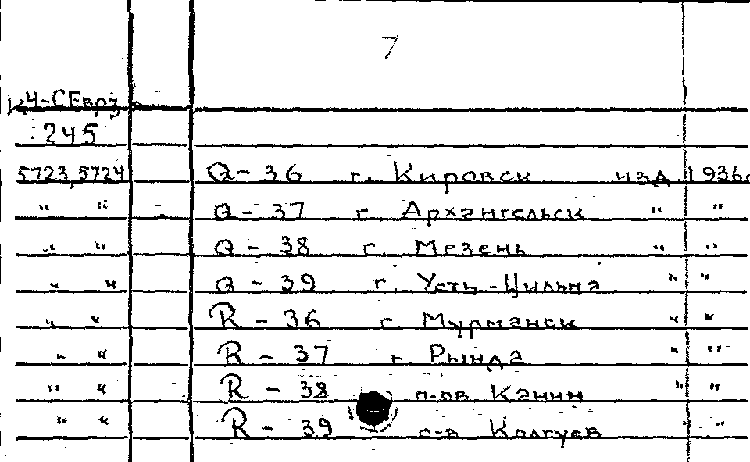 7
И4-СЕвр3
245
5723,5724 Q-36 г. Кировск изд 1936г
" " Q-37 г. Архангельск " "
" " Q-38 г. Мезень " "
" " Q-39 г. Усть-Цильма " "
" " R-36 г. Мурманск " "
" " R-37 г. Рында " "
" " R-38 п-ов Канин " "
" " R-39 о-в Колгуев " "